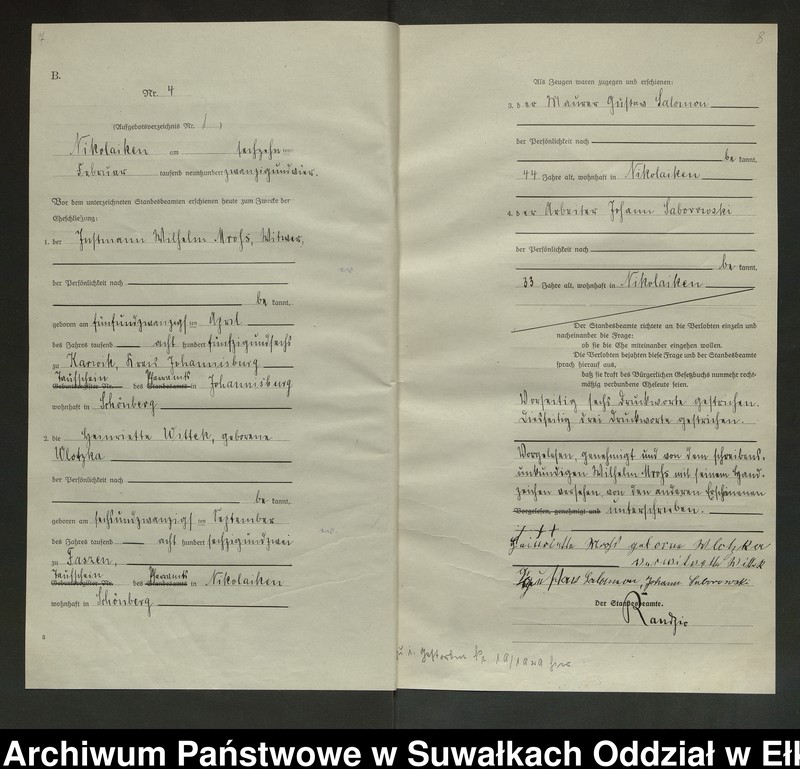 7
B.
Nr. 4
(Aufgebotsverzeichnis Nr. 1 )
Nikolaiken am sechzehn ten
Februar tausend neunhundert zwanzigundvier.
Vor dem unterzeichneten Standesbeamten erschienen heute zum Zwecke der
Eheschließung:
1. der Instmann Wilhelm Mrohs, Witwer,
der Persönlichkeit nach
be kannt,
geboren am fünfundzwanzigs ten April
des Jahres tausend acht hundert fünfzigundsechs
zu Karwik, Kreis Johannisburg
Taufschein Pfarramts
Geburtsregister Nr. des Standesamts in Johannisburg
wohnhaft in Schönberg
2. die Henriette Wittek, geborene
Wlotzka
der Persönlichkeit nach
be kannt,
geboren am sechsundzwanzigs ten September
des Jahres tausend acht hundert sechzigundzwei
zu Faszen,
Taufschein Pfarramts
Geburtsregister Nr. des Standesamts in Nikolaiken
wohnhaft in Schönberg
8
Als Zeugen waren zugegen und erschienen:
3. der Maurer Gustav Salomon
der Persönlichkeit nach
be kannt,
44 Jahre alt, wohnhaft in Nikolaiken
4. der Arbeiter Johann Saborowski
der Persönlichkeit nach
be kannt,
33 Jahre alt, wohnhaft in Nikolaiken
Der Standesbeamte richtete an die Verlobten einzeln und
nacheinander die Frage:
ob sie die Ehe miteinander eingehen wollen.
Die Verlobten bejahten diese Frage und der Standesbeamte
sprach hierauf aus,
daß sie kraft des Bürgerlichen Gesetzbuchs nunmehr recht-
mäßig verbundene Eheleute seien.
Vorseitig sechs Druckworte gestrichen.
Diesseitig drei Druckworte gestrichen.
Vorgelesen, genehmigt und von dem schreibens-
unkundigen Wilhelm Mrohs mit seinem Hand-
zeichen versehen, von den anderen Erschienenen
Vorgelesen, genehmigt und unterschrieben.
+ + +
Mrohs geborne Wlotzka
verwitwete Wittek
Gustav Salomon, Johann Saborowski
Der Standesbeamte.
Randzio
Archiwum Państwowe w Suwałkach Oddział w Ełk